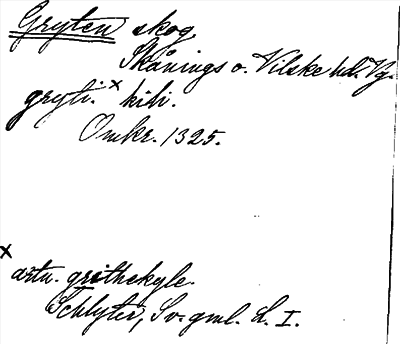 Gryten skog
Skånings o. Vilske hd. Vg.
gryti. x kili.
Omkr. 1325.
x
artu. grithekyle.
Schlyter, Sv. gml. L. I.